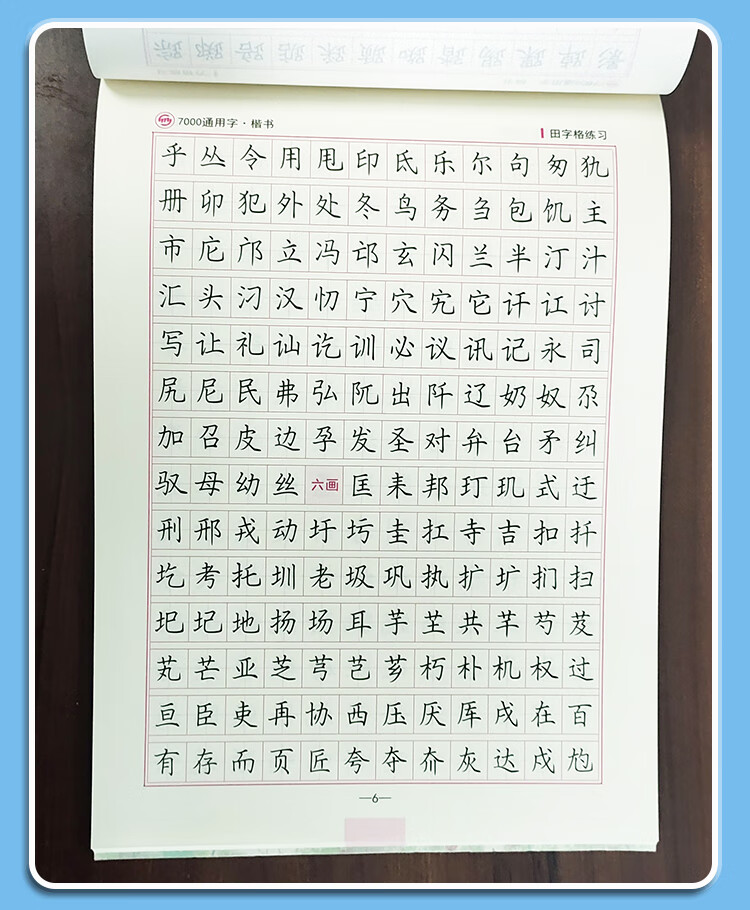 7000通用字·楷书
田字格练习
乎丛令用甩印氐乐尔句匆犰
册卯犯外处冬鸟务刍包饥主
市庀邝立冯邙玄闪兰半汀汁
汇头氿汉忉宁穴宄它讦讧讨
写让礼讪讫训必议讯记永司
尻尼民弗弘阢出阡辽奶奴尕
加召皮边孕发圣对弁台矛纠
驭母幼丝六画匡耒邦玎玑式迂
刑邢戎动圩圬圭扛寺吉扣扦
圪考托圳老圾巩执扩圹扪扫
圯圮地扬场耳芋芏共芊芍芨
芄芒亚芝芎芑芗朽朴机权过
亘臣吏再协西压厌厍戌在百
有存而页匠夸夺夼灰达戍尥
—6—